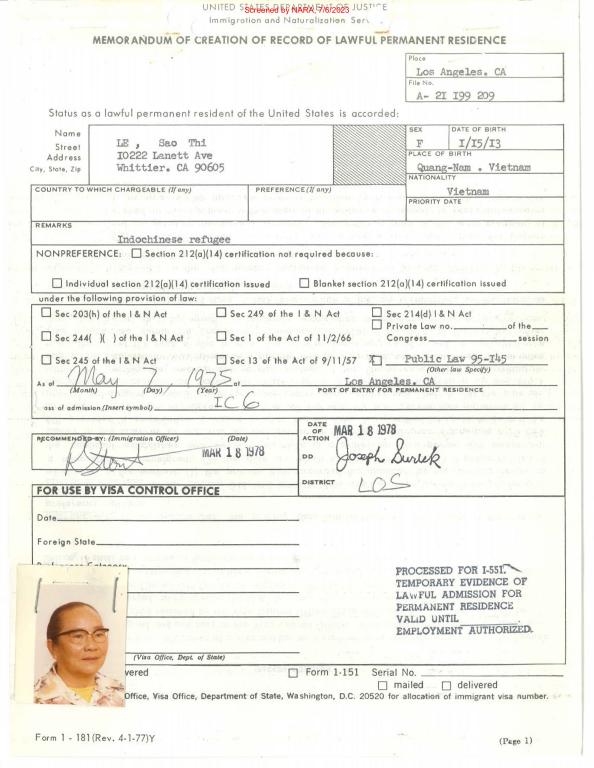 UNITED STATES DEPARTMENT OF JUSTICE
Screened by NARA, 7/6/2023
Immigration and Naturalization Serv
MEMORANDUM OF CREATION OF RECORD OF LAWFUL PERMANENT RESIDENCE
Place
Los Angeles. CA
File No.
A- 2I I99 209
Status as a lawful permanent resident of the United States is accorded:
Name
Street
Address
City, State, Zip
LE , Sao Thi
I0222 Lanett Ave
Whittier. CA 90605
SEX
F
DATE OF BIRTH
I/I5/I3
PLACE OF BIRTH
Quang-Nam . Vietnam
NATIONALITY
Vietnam
COUNTRY TO WHICH CHARGEABLE (If any)
PREFERENCE (If any)
PRIORITY DATE
REMARKS
Indochinese refugee
NONPREFERENCE: Section 212(a)(14) certification not required because:
Individual section 212(a)(14) certification issued Blanket section 212(a)(14) certification issued
under the following provision of law:
Sec 203(h) of the I & N Act Sec 249 of the I & N Act Sec 214(d) I & N Act
Private Law no. of the
Sec 244( )( ) of the I & N Act Sec 1 of the Act of 11/2/66 Congress session
Sec 245 of the I & N Act Sec 13 of the Act of 9/11/57 X Public Law 95-I45
(Other law Specify)
As of May 7, 1975 at Los Angeles. CA
(Month) (Day) (Year) PORT OF ENTRY FOR PERMANENT RESIDENCE
ass of admission (Insert symbol) IC6
RECOMMENDED BY: (Immigration Officer) (Date)
MAR 1 8 1978
DATE OF ACTION MAR 1 8 1978
DD Joseph Surek
DISTRICT LOS
FOR USE BY VISA CONTROL OFFICE
Date
Foreign State
PROCESSED FOR I-551.
TEMPORARY EVIDENCE OF
LAWFUL ADMISSION FOR
PERMANENT RESIDENCE
VALID UNTIL
EMPLOYMENT AUTHORIZED.
(Visa Office, Dept. of State)
vered Form 1-151 Serial No.
mailed delivered
Office, Visa Office, Department of State, Washington, D.C. 20520 for allocation of immigrant visa number.
Form I - 181 (Rev. 4-1-77)Y
(Page 1)